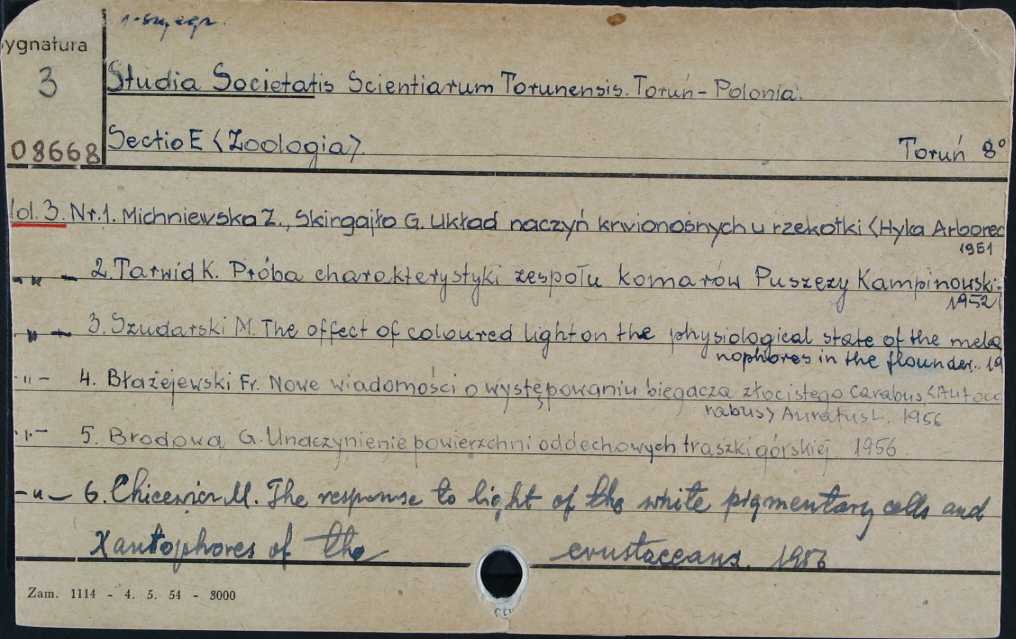 1-szy egz.
ygnatura
3
Studia Societatis Scientiarum Torunensis. Toruń - Polonia.
Sectio E <Zoologia>.
Toruń 8°
08668
ol. 3. Nr. 1. Michniewska Z., Skirgajło G. Układ naczyń krwionośnych u rzekotki <Hyla Arborec
1951
-"- 2. Tarwid K. Próba charakterystyki zespołu komarów Puszczy Kampinowski-
1952
" - 3. Szudarski M. The effect of coloured light on the physiological state of the mela
nophores in the flounder. 19
-"- 4. Błażejewski Fr. Nowe wiadomości o występowaniu biegacza złocistego Carabus <Autoca
rabus> Auratus L. 1956
-"- 5. Brodowa G. Unaczynienie powierzchni oddechowych traszki górskiej 1956
-"- 6. M. The response to light of the white pigmentary cells and
Xantophores of the crustaceans. 1956
Zam. 1114 - 4. 5. 54 - 3000